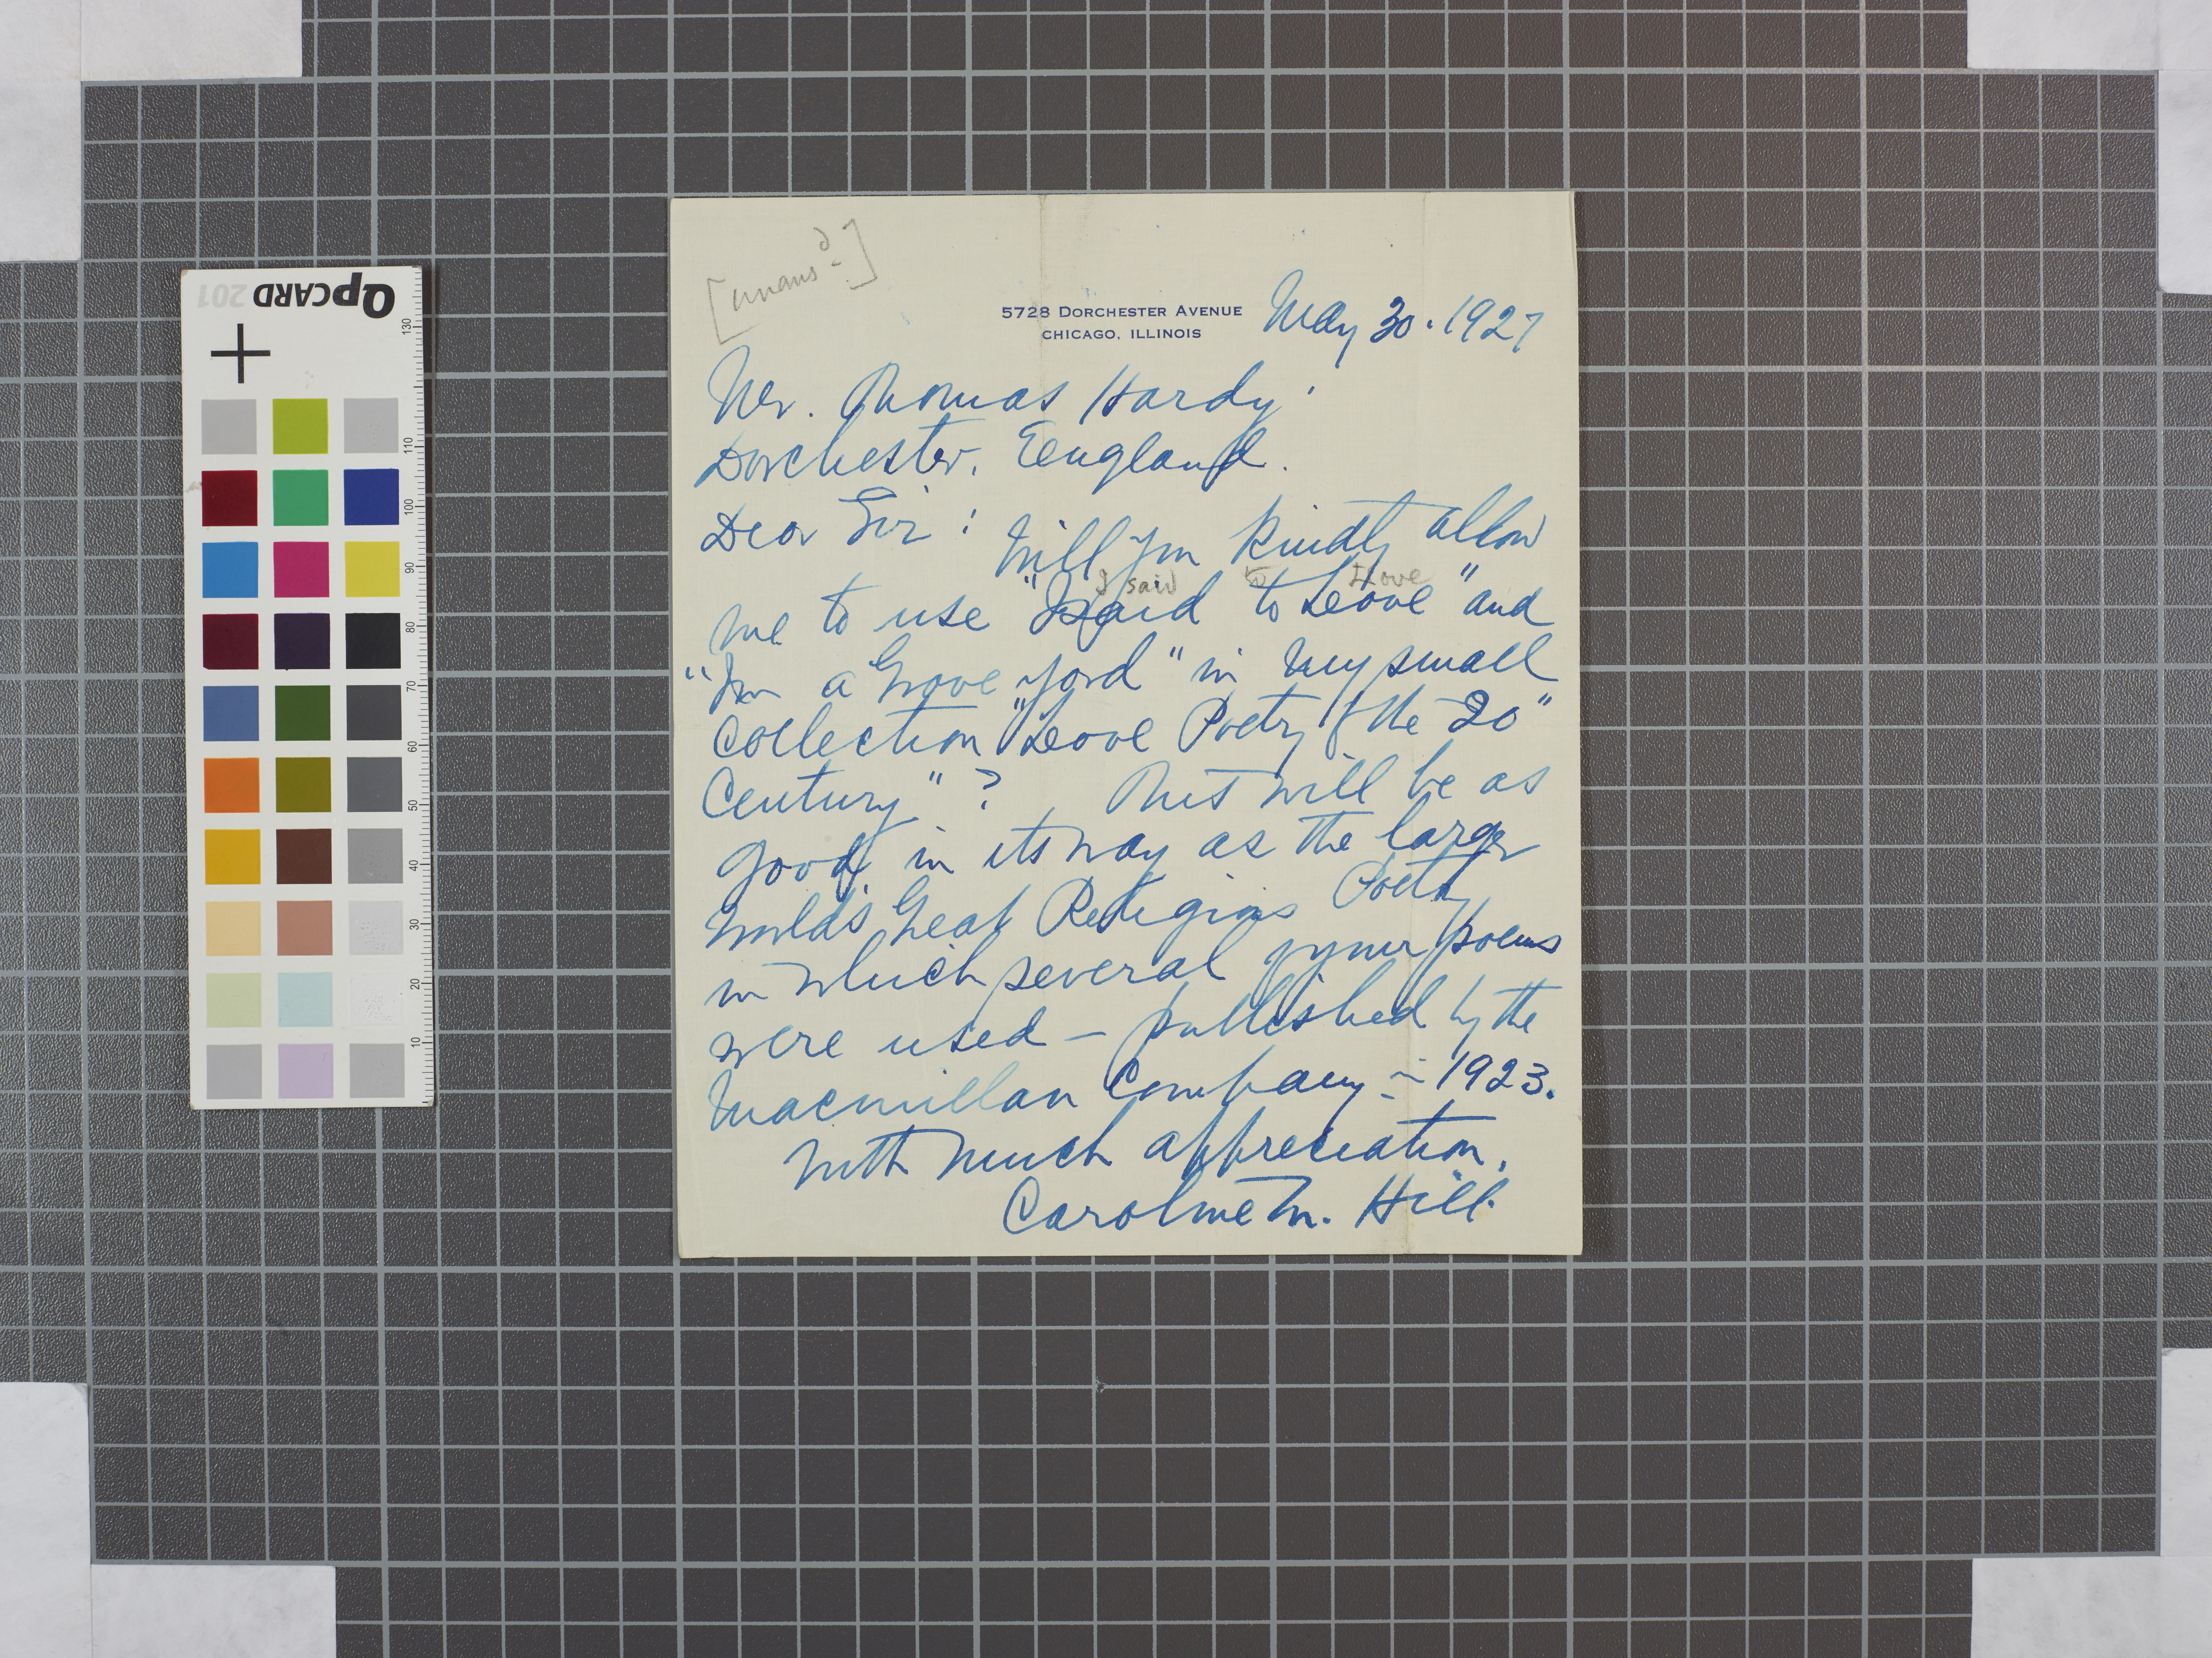 QPCARD 201
130
110
100
90
80
70
60
50
40
30
20
10
[unans^d.]
5728 DORCHESTER AVENUE
CHICAGO, ILLINOIS
May 30. 1927
Mr. Thomas Hardy.
Dorchester, England.
Dear Sir: Will you kindly allow
I said to Love
me to use "I said to Love" and
"In a Grove yard" in my small
collection "Love Poetry of the 20"
Century"? This will be as
good in its way as the larger
World's Great Religious Poetry
in which several of your poems
were used — published by the
Macmillan Company in 1923.
With much appreciation,
Caroline M. Hill.